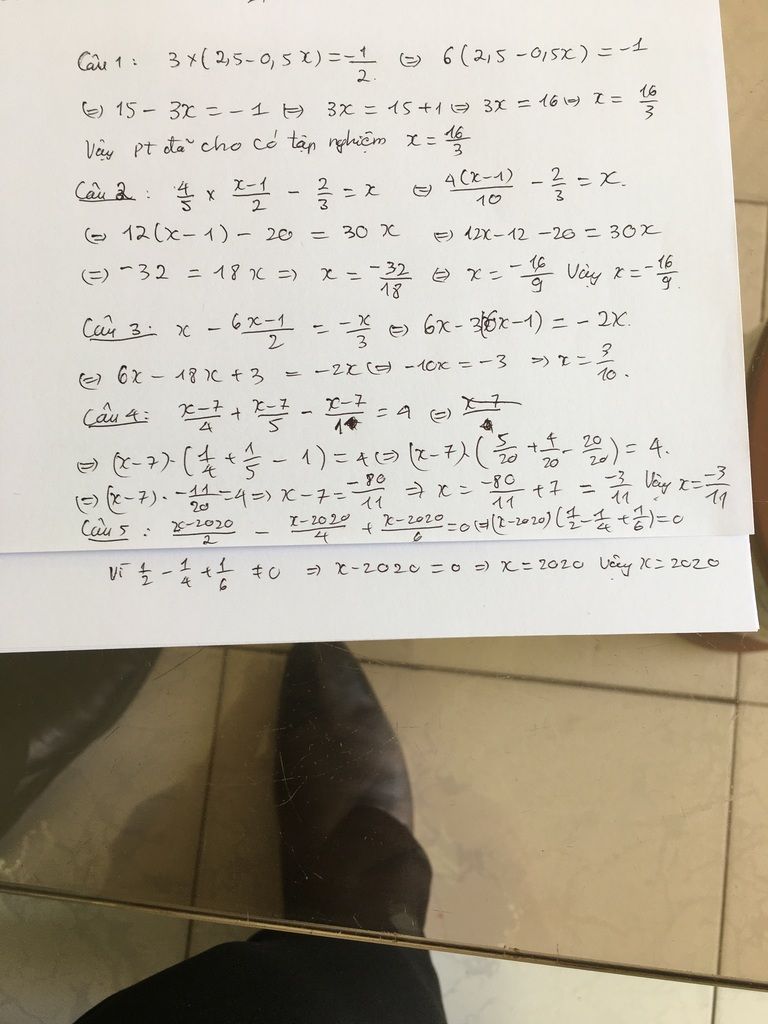 Câu 1 : 3 × (2,5 - 0,5x) = -1/2 ⇔ 6(2,5 - 0,5x) = -1
⇔ 15 - 3x = -1 ⇔ 3x = 15 + 1 ⇔ 3x = 16 ⇔ x = 16/3
Vậy pt đã cho có tập nghiệm x = 16/3
Câu 2 : 4/5 × x-1/2 - 2/3 = x ⇔ 4(x-1)/10 - 2/3 = x.
⇔ 12(x-1) - 20 = 30x ⇔ 12x - 12 - 20 = 30x
⇔ -32 = 18x ⇒ x = -32/18 ⇔ x = -16/9 Vậy x = -16/9.
Câu 3 : x - 6x-1/2 = -x/3 ⇔ 6x - 3(6x-1) = -2x.
⇔ 6x - 18x + 3 = -2x ⇔ -10x = -3 ⇒ x = 3/10.
Câu 4 : x-7/4 + x-7/5 - x-7/1 = 4 ⇔
⇔ (x-7).(1/4 + 1/5 - 1) = 4 ⇔ (x-7).(5/20 + 4/20 - 20/20) = 4.
⇔ (x-7) . -11/20 = 4 ⇒ x-7 = -80/11 ⇒ x = -80/11 + 7 = -3/11 Vậy x = -3/11
Câu 5 : x-2020/2 - x-2020/4 + x-2020/6 = 0 ⇔ (x-2020)(1/2 - 1/4 + 1/6) = 0
Vì 1/2 - 1/4 + 1/6 ≠ 0 ⇒ x - 2020 = 0 ⇒ x = 2020 Vậy x = 2020